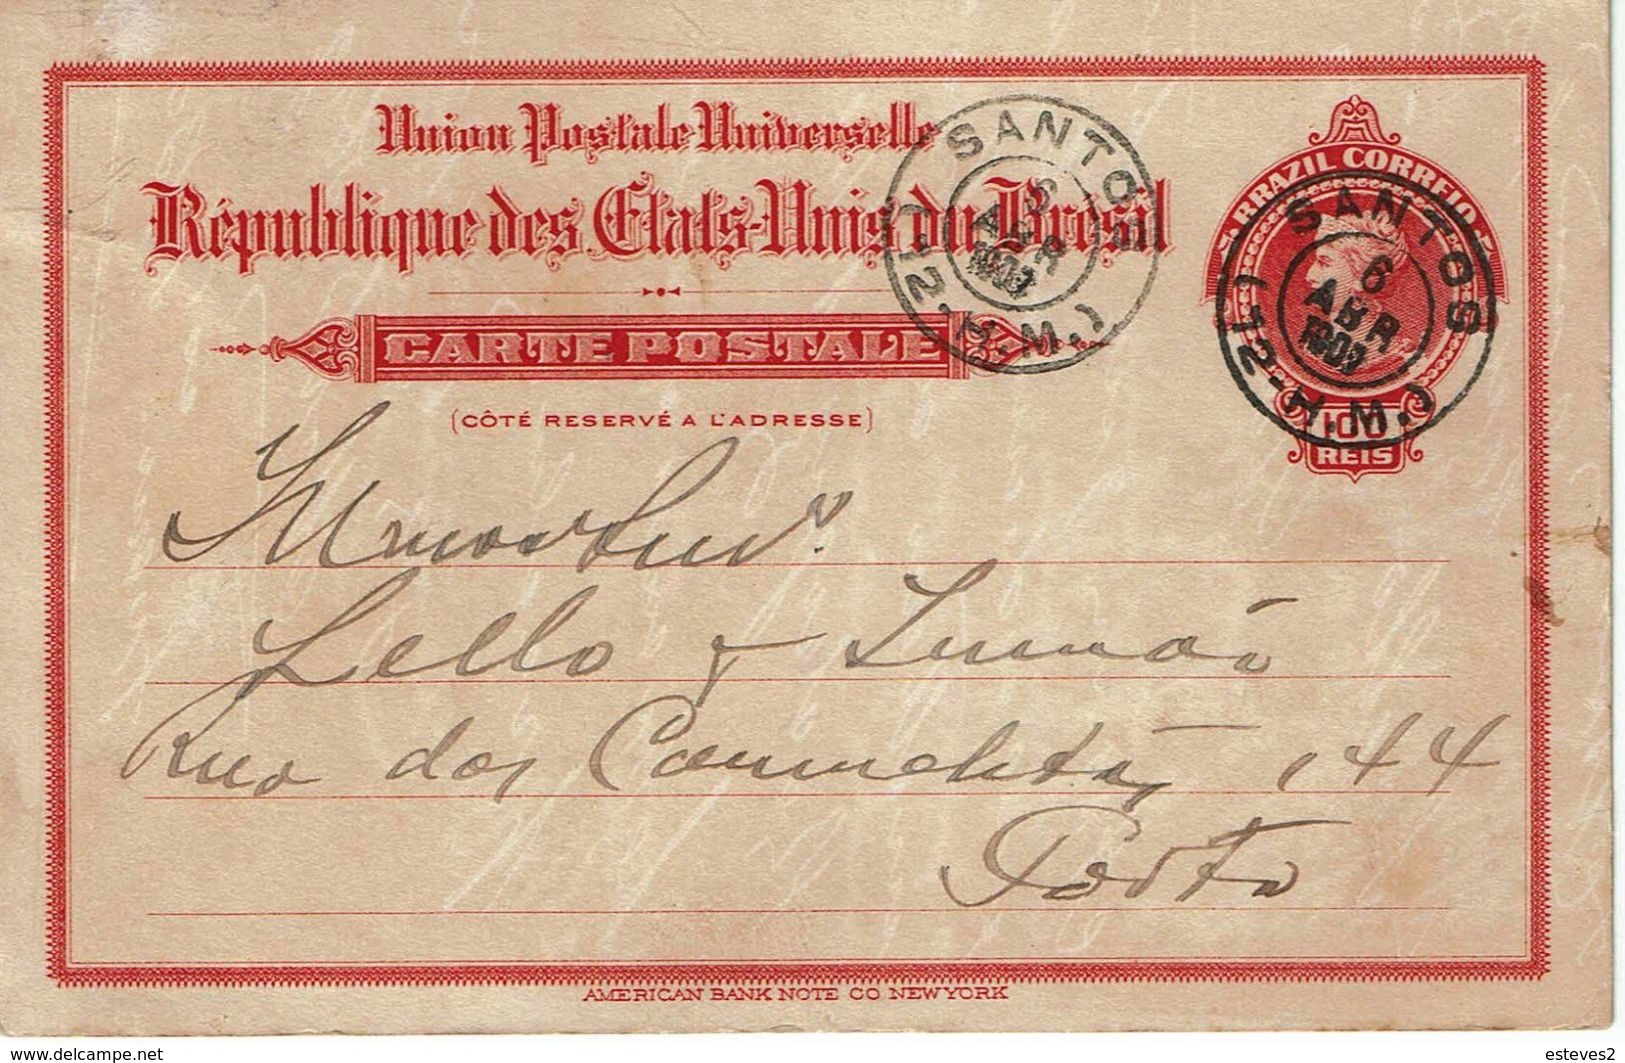 Union Postale Universelle
République des Etats-Unis du Brésil
CARTE POSTALE
(CÔTÉ RESERVÉ A L'ADRESSE)
BRAZIL CORREIO
100
REIS
SANTOS
6
ABR
(12-H.M.)
SANTOS
6
ABR
(12-H.M.)
Lello & Irmão
Rua das Carmelitas, 144
Porto
AMERICAN BANK NOTE CO NEW YORK
www.delcampe.net
esteves2